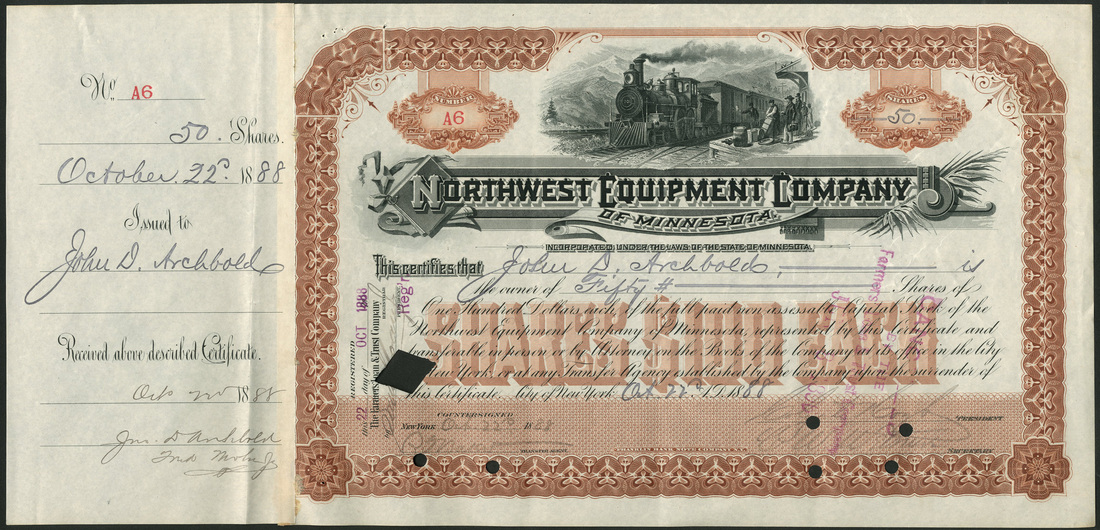 No. A6
50 Shares.
October 22d 1888
Issued to
John D. Archbold
Received above described Certificate.
Oct 22d 1888
Jno. D Archbold
NUMBER
A6
SHARES
50
NORTHWEST EQUIPMENT COMPANY
OF MINNESOTA.
INCORPORATED UNDER THE LAWS OF THE STATE OF MINNESOTA.
This certifies that John D. Archbold, is
the owner of Fifty Shares of
One Hundred Dollars each of the full paid non assessable Capital Stock of the
Northwest Equipment Company of Minnesota, represented by this Certificate and
transferable in person or by Attorney on the Books of the Company at its office in the City
New York, or at any Transfer Agency established by the Company upon the surrender of
this Certificate. City of New York Oct 22d A.D. 1888
SHARES $100 EACH
COUNTERSIGNED
NEW YORK Oct. 22d 1888
TRANSFER AGENT
PRESIDENT
SECRETARY
REGISTERED
this 22 day of OCT 1888
The Farmers Loan & Trust Company
by
Reg'r
Farmers